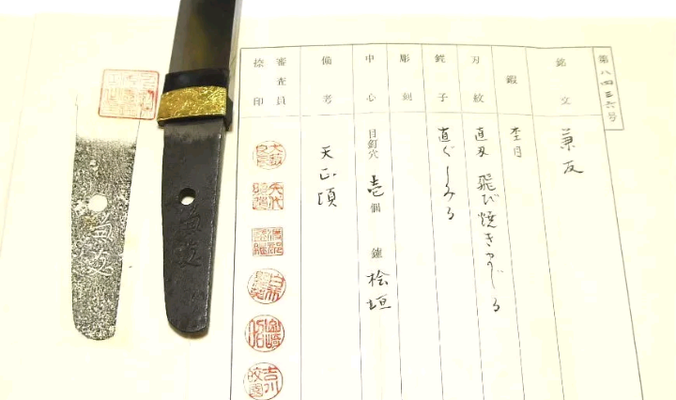 第八四三六号
銘文
兼友
鍛
杢目
刃紋
直刃 飛び焼きまじる
鋩子
彫刻
中心
目釘穴 壱個 鑢 桧垣
備考
天正頃
審査員
捺印
兼友
兼友